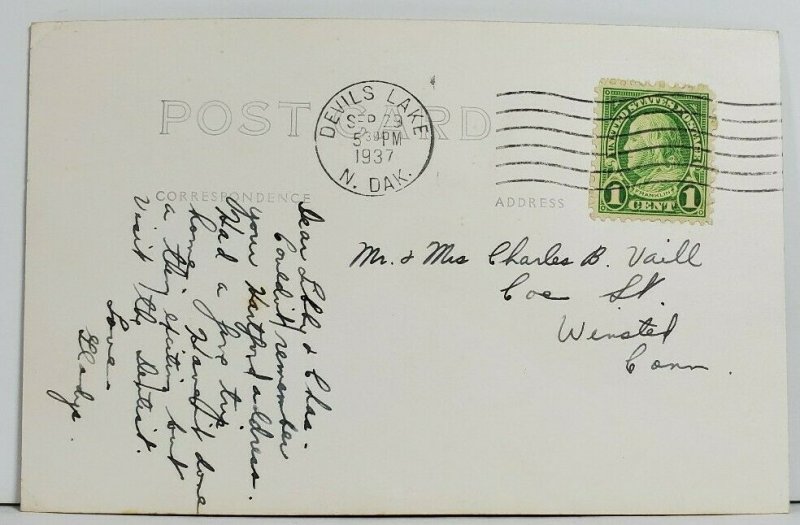 POST CARD
DEVILS LAKE
SEP 29
5 30 PM
1937
N. DAK.
UNITED STATES POSTAGE
FRANKLIN
1 CENT 1
CORRESPONDENCE
ADDRESS
Mr. & Mrs Charles B. Vaill
Coe St.
Winsted
Conn.
Dear Libby & Chas.
Couldn't remember
your Hartford address.
Had a fine trip
home. Haven't done
a thing exciting but
visit the dentist.
Love
Gladys.